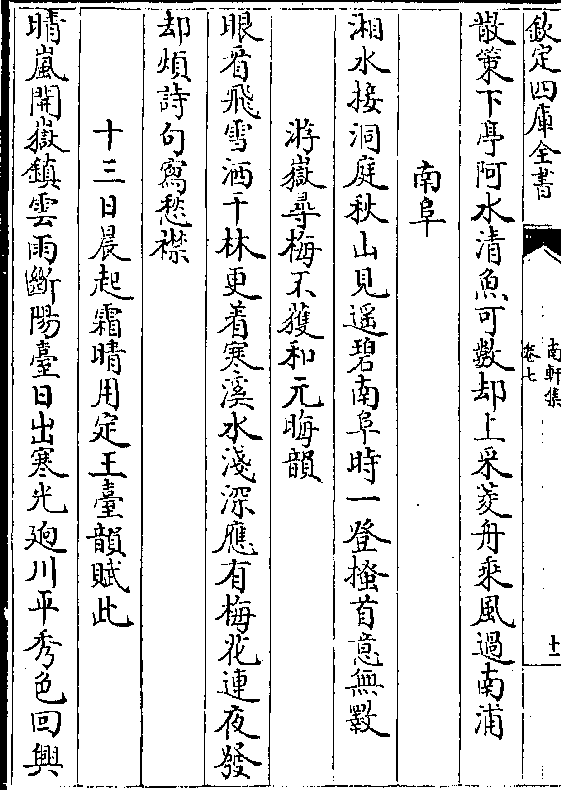 欽定四庫全書
南軒集
卷七
十一
散策下亭阿水清魚可數却上采菱舟乘風過南浦
南阜
湘水接洞庭秋山見遥碧南阜時一登搔首意無斁
游嶽尋梅不獲和元晦韻
眼看飛雪洒千林更着寒溪水淺深應有梅花連夜發
却煩詩句寫愁襟
十三日晨起霜晴用定王臺韻賦此
晴嵐開嶽鎮雲雨斷陽臺日出寒光迥川平秀色回興